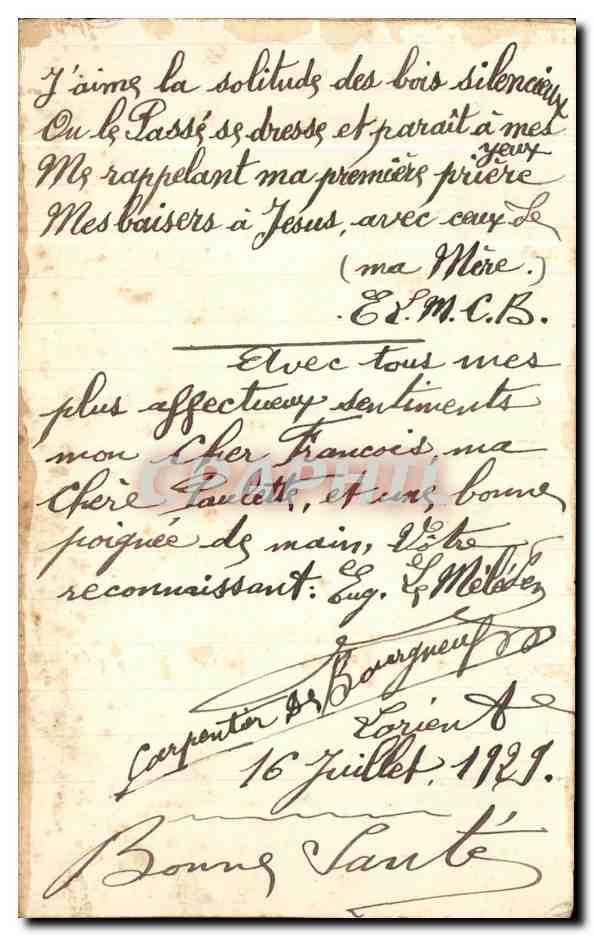 J'aime la solitude des bois silencieux
Ou le Passé se dresse et paraît à mes
yeux
Me rappelant ma première prière
Mes baisers à Jesus, avec ceux de
(ma Mère.)
E L. M. C. B.
Avec tous mes
plus affectueux sentiments
mon Cher Francois, ma
Chère Paulette, et une bonne
poignée de main, Vôtre
reconnaissant: Eug. Le
Carpentier de Bourgneuf
Lorient
16 Juillet, 1929.
Bonne Santé